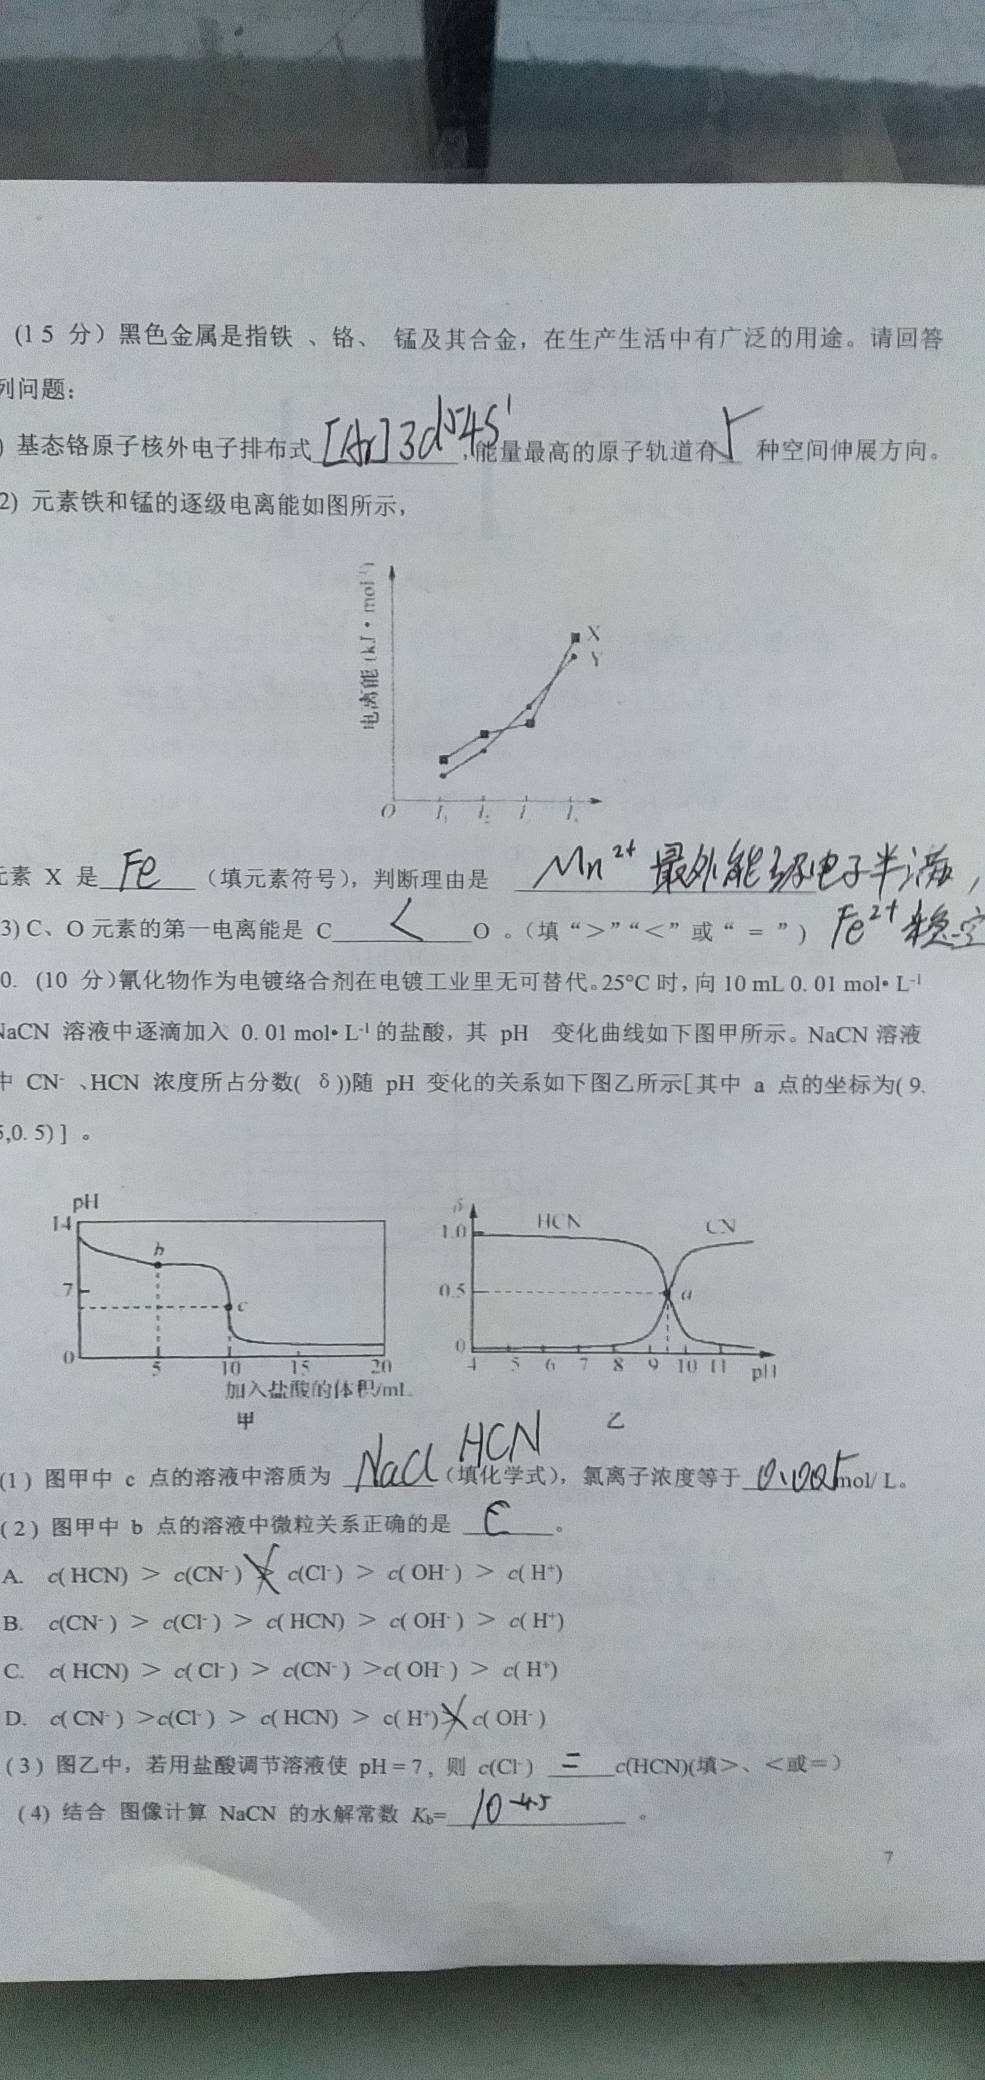 (15 分）黑色金属是指铁 、铬、 锰及其合金，在生产生活中有广泛的用途。请回答
列问题：
) 基态铬原子核外电子排布式[Ar]3d⁵4s¹,能量最高的原子轨道有 5 种空间伸展方向。
2) 元素铁和锰的逐级电离能如图所示，
电离能 (kJ·mol⁻¹)
X
Y
O I₁ I₂
元素 X 是 Fe （填元素符号），判断理由是 Mn²⁺ 最外能级电子半满，
3) C、O 元素的第一电离能是 C < O 。（填“>”“<”或“ = ”） Fe²⁺ 稳定
0. (10 分)氰化物作为电镀络合剂在电镀工业里无可替代。25°C 时，向 10 mL 0. 01 mol• L⁻¹
NaCN 溶液中逐滴加入 0. 01 mol• L⁻¹ 的盐酸，其 pH 变化曲线如下图甲所示。NaCN 溶液
中 CN⁻ 、HCN 浓度所占分数( δ ))随 pH 变化的关系如下图乙所示[其中 a 点的坐标为( 9.
5,0. 5) ] 。
pH
14
b
7
c
0 5 10 15 20
加入盐酸的体积/mL
甲
δ
1.0
HCN
CN
0.5
a
0
4 5 6 7 8 9 10 11 pH
乙
(1 ) 图甲中 c 点的溶液中溶质为 NaCl HCN (填化学式），氯离子浓度等于 0.005 mol/ L。
( 2 ) 图甲中 b 点的溶液中微粒关系正确的是 C 。
A. c( HCN) > c(CN⁻ ) > c(Cl⁻ ) > c( OH⁻ ) > c( H⁺)
B. c(CN⁻ ) > c(Cl⁻ ) > c( HCN) > c( OH⁻ ) > c( H⁺)
C. c( HCN) > c( Cl⁻ ) > c(CN⁻ ) >c( OH⁻ ) > c( H⁺)
D. c( CN⁻ ) >c(Cl⁻ ) > c( HCN) > c( H⁺) > c( OH⁻ )
( 3 ) 图乙中，若用盐酸调节溶液使 pH = 7 , 则 c(Cl⁻ ) = c(HCN)(填＞、＜或＝）
( 4) 结合 图像计算 NaCN 的水解常数 K_b= 10⁻⁴·⁵ 。
7